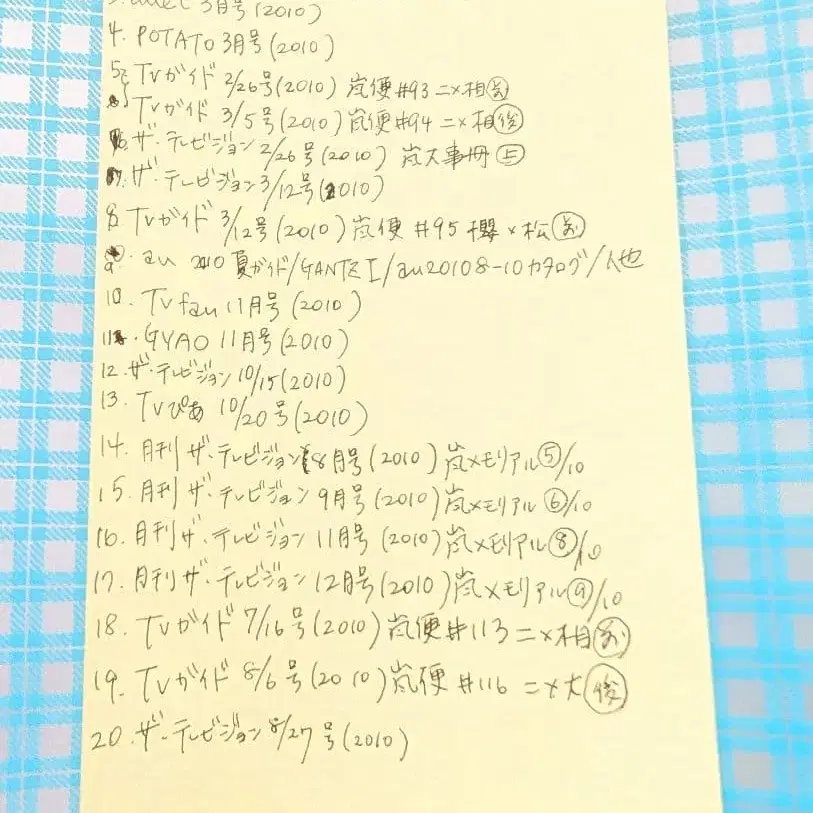 3月号(2010)
4. POTATO 3月号(2010)
5. TVガイド 2/26号(2010) 嵐便#93 二×相㊤
TVガイド 3/5号(2010) 嵐便#94 二×相(後)
6. ザ・テレビジョン 2/26号(2010) 嵐大事冊㊤
7. ザ・テレビジョン 3/12号(2010)
8. TVガイド 3/12号(2010) 嵐便 #95 櫻×松(前)
9. au 2010 夏ガイド/GANTZ I/au2010 8-10カタログ/人也
10. TV fan 11月号(2010)
11. GYAO 11月号(2010)
12. ザ・テレビジョン 10/15(2010)
13. TVぴあ 10/20号(2010)
14. 月刊ザ・テレビジョン 8月号(2010) 嵐メモリアル⑤/10
15. 月刊ザ・テレビジョン 9月号(2010) 嵐メモリアル⑥/10
16. 月刊ザ・テレビジョン 11月号(2010) 嵐メモリアル⑧/10
17. 月刊ザ・テレビジョン 12月号(2010) 嵐メモリアル⑨/10
18. TVガイド 7/16号(2010) 嵐便#113 二×相(前)
19. TVガイド 8/6号(2010) 嵐便 #116 二×大(後)
20. ザ・テレビジョン 8/27号(2010)